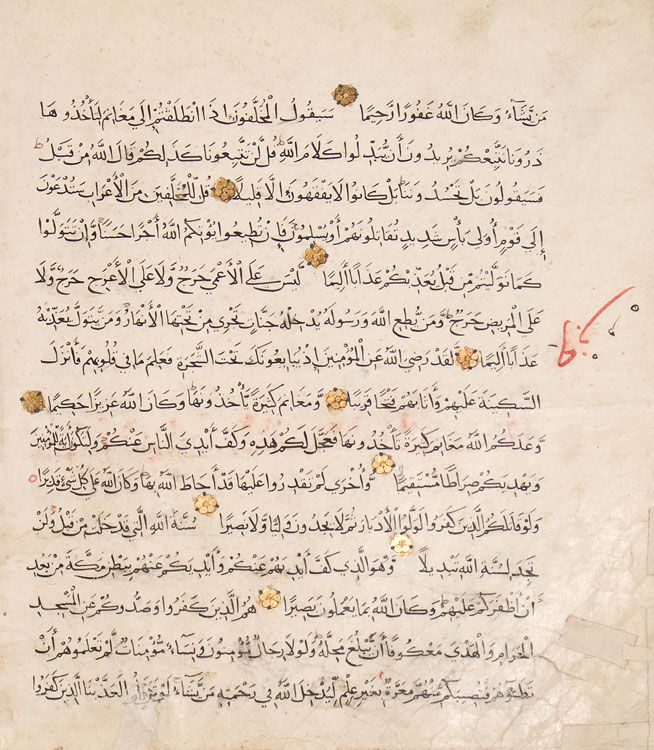 مَن يَشَاءُ وَكَانَ اللَّهُ غَفُورًا رَّحِيمًا سَيَقُولُ الْمُخَلَّفُونَ إِذَا انْطَلَقْتُمْ إِلَى مَغَانِمَ لِتَأْخُذُوهَا
ذَرُونَا نَتَّبِعْكُمْ يُرِيدُونَ أَن يُبَدِّلُوا كَلَامَ اللَّهِ قُل لَّنْ تَتَّبِعُونَا كَذَلِكُمْ قَالَ اللَّهُ مِنْ قَبْلُ
فَسَيَقُولُونَ بَلْ تَحْسُدُونَنَا بَلْ كَانُوا لَا يَفْقَهُونَ إِلَّا قَلِيلًا قُل لِّلْمُخَلَّفِينَ مِنَ الْأَعْرَابِ سَتُدْعَوْنَ
إِلَى قَوْمٍ أُولِي بَأْسٍ شَدِيدٍ تُقَاتِلُونَهُمْ أَوْ يُسْلِمُونَ فَإِنْ تُطِيعُوا يُؤْتِكُمُ اللَّهُ أَجْرًا حَسَنًا وَإِنْ تَتَوَلَّوْا
كَمَا تَوَلَّيْتُم مِّنْ قَبْلُ يُعَذِّبْكُمْ عَذَابًا أَلِيمًا لَيْسَ عَلَى الْأَعْمَى حَرَجٌ وَلَا عَلَى الْأَعْرَجِ حَرَجٌ وَلَا
عَلَى الْمَرِيضِ حَرَجٌ وَمَن يُطِعِ اللَّهَ وَرَسُولَهُ يُدْخِلْهُ جَنَّاتٍ تَجْرِي مِنْ تَحْتِهَا الْأَنْهَارُ وَمَن يَتَوَلَّ يُعَذِّبْهُ
عَذَابًا أَلِيمًا لَقَدْ رَضِيَ اللَّهُ عَنِ الْمُؤْمِنِينَ إِذْ يُبَايِعُونَكَ تَحْتَ الشَّجَرَةِ فَعَلِمَ مَا فِي قُلُوبِهِمْ فَأَنْزَلَ
السَّكِينَةَ عَلَيْهِمْ وَأَثَابَهُمْ فَتْحًا قَرِيبًا وَمَغَانِمَ كَثِيرَةً يَأْخُذُونَهَا وَكَانَ اللَّهُ عَزِيزًا حَكِيمًا
وَعَدَكُمُ اللَّهُ مَغَانِمَ كَثِيرَةً تَأْخُذُونَهَا فَعَجَّلَ لَكُمْ هَذِهِ وَكَفَّ أَيْدِيَ النَّاسِ عَنْكُمْ وَلِتَكُونَ آيَةً لِلْمُؤْمِنِينَ
وَيَهْدِيَكُمْ صِرَاطًا مُسْتَقِيمًا وَأُخْرَى لَمْ تَقْدِرُوا عَلَيْهَا قَدْ أَحَاطَ اللَّهُ بِهَا وَكَانَ اللَّهُ عَلَى كُلِّ شَيْءٍ قَدِيرًا
وَلَوْ قَاتَلَكُمُ الَّذِينَ كَفَرُوا لَوَلَّوُا الْأَدْبَارَ ثُمَّ لَا يَجِدُونَ وَلِيًّا وَلَا نَصِيرًا سُنَّةَ اللَّهِ الَّتِي قَدْ خَلَتْ مِنْ قَبْلُ وَلَنْ
تَجِدَ لِسُنَّةِ اللَّهِ تَبْدِيلًا وَهُوَ الَّذِي كَفَّ أَيْدِيَهُمْ عَنْكُمْ وَأَيْدِيَكُمْ عَنْهُمْ بِبَطْنِ مَكَّةَ مِنْ بَعْدِ
أَنْ أَظْفَرَكُمْ عَلَيْهِمْ وَكَانَ اللَّهُ بِمَا يَعْمَلُونَ بَصِيرًا هُمُ الَّذِينَ كَفَرُوا وَصَدُّوكُمْ عَنِ الْمَسْجِدِ
الْحَرَامِ وَالْهَدْيَ مَعْكُوفًا أَن يَبْلُغَ مَحِلَّهُ وَلَوْلَا رِجَالٌ مُؤْمِنُونَ وَنِسَاءٌ مُؤْمِنَاتٌ لَمْ تَعْلَمُوهُمْ أَنْ
تَطَئُوهُمْ فَتُصِيبَكُمْ مِنْهُمْ مَعَرَّةٌ بِغَيْرِ عِلْمٍ لِيُدْخِلَ اللَّهُ فِي رَحْمَتِهِ مَن يَشَاءُ لَوْ تَزَيَّلُوا لَعَذَّبْنَا الَّذِينَ كَفَرُوا